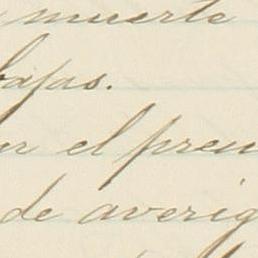 muerte
bajas.
el pren
de averig